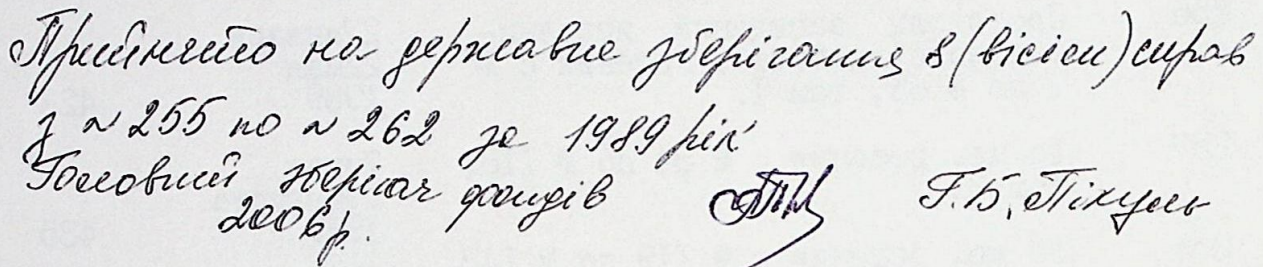 Прийнято на державне зберігання 8 (вісім) справ
з №255 по №262 за 1989 рік
Головний зберігач фондів Г.Б. Пікуль
2006 р.